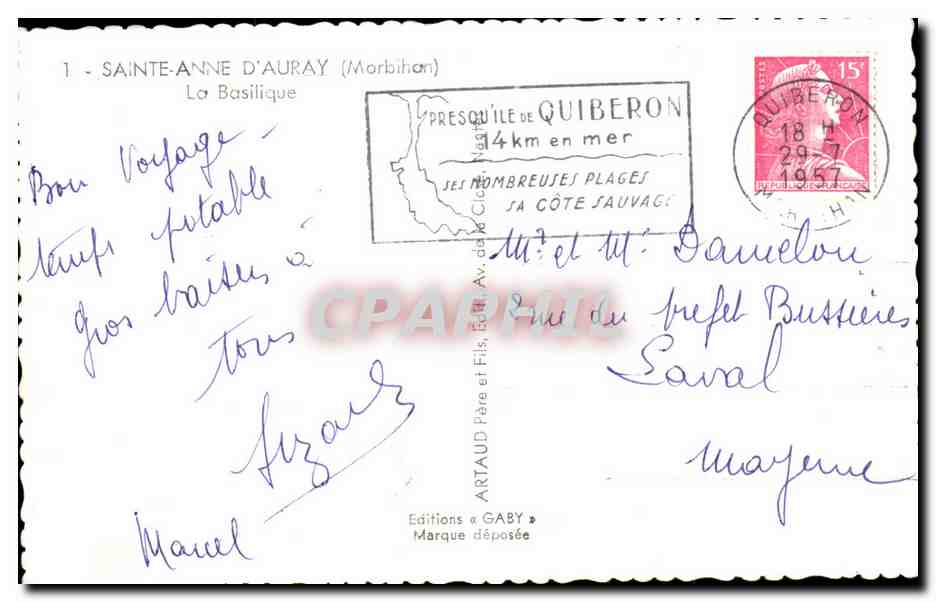 1 - SAINTE-ANNE D'AURAY (Morbihan)
La Basilique
Bon Voyage -
temps potable
Gros baisers à
tous
Suzanne
Marcel
PRESQU'ILE DE QUIBERON
14 km en mer
SES NOMBREUSES PLAGES
SA CÔTE SAUVAGE
POSTES
15F
REPUBLIQUE FRANÇAISE
QUIBERON
18 H
29-7
1957
MORBIHAN
Mr et Me Damelou
rue du prefet Bussières
Laval
Mayenne
ARTAUD Père et Fils, Edit., Av. de la Close, Nantes
Editions « GABY »
Marque déposée
CPAPHIL